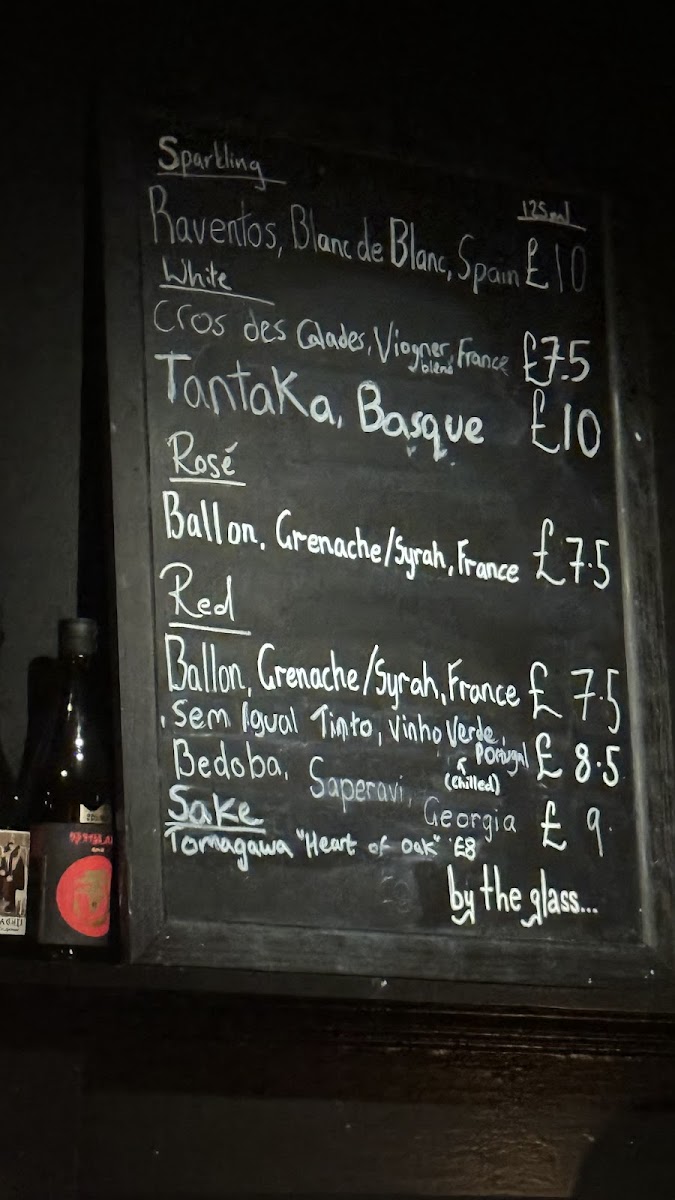 Sparkling
125ml
Raventos, Blanc de Blanc, Spain £10
White
Cros des Calades, Viogner blend, France £7.5
Tantaka, Basque £10
Rosé
Ballon, Grenache/Syrah, France £7.5
Red
Ballon, Grenache/Syrah, France £7.5
Sem Igual Tinto, Vinho Verde, Portugal £8.5
(chilled)
Bedoba, Saperavi, Georgia £9
Sake
Tomagawa "Heart of Oak" £8
by the glass...